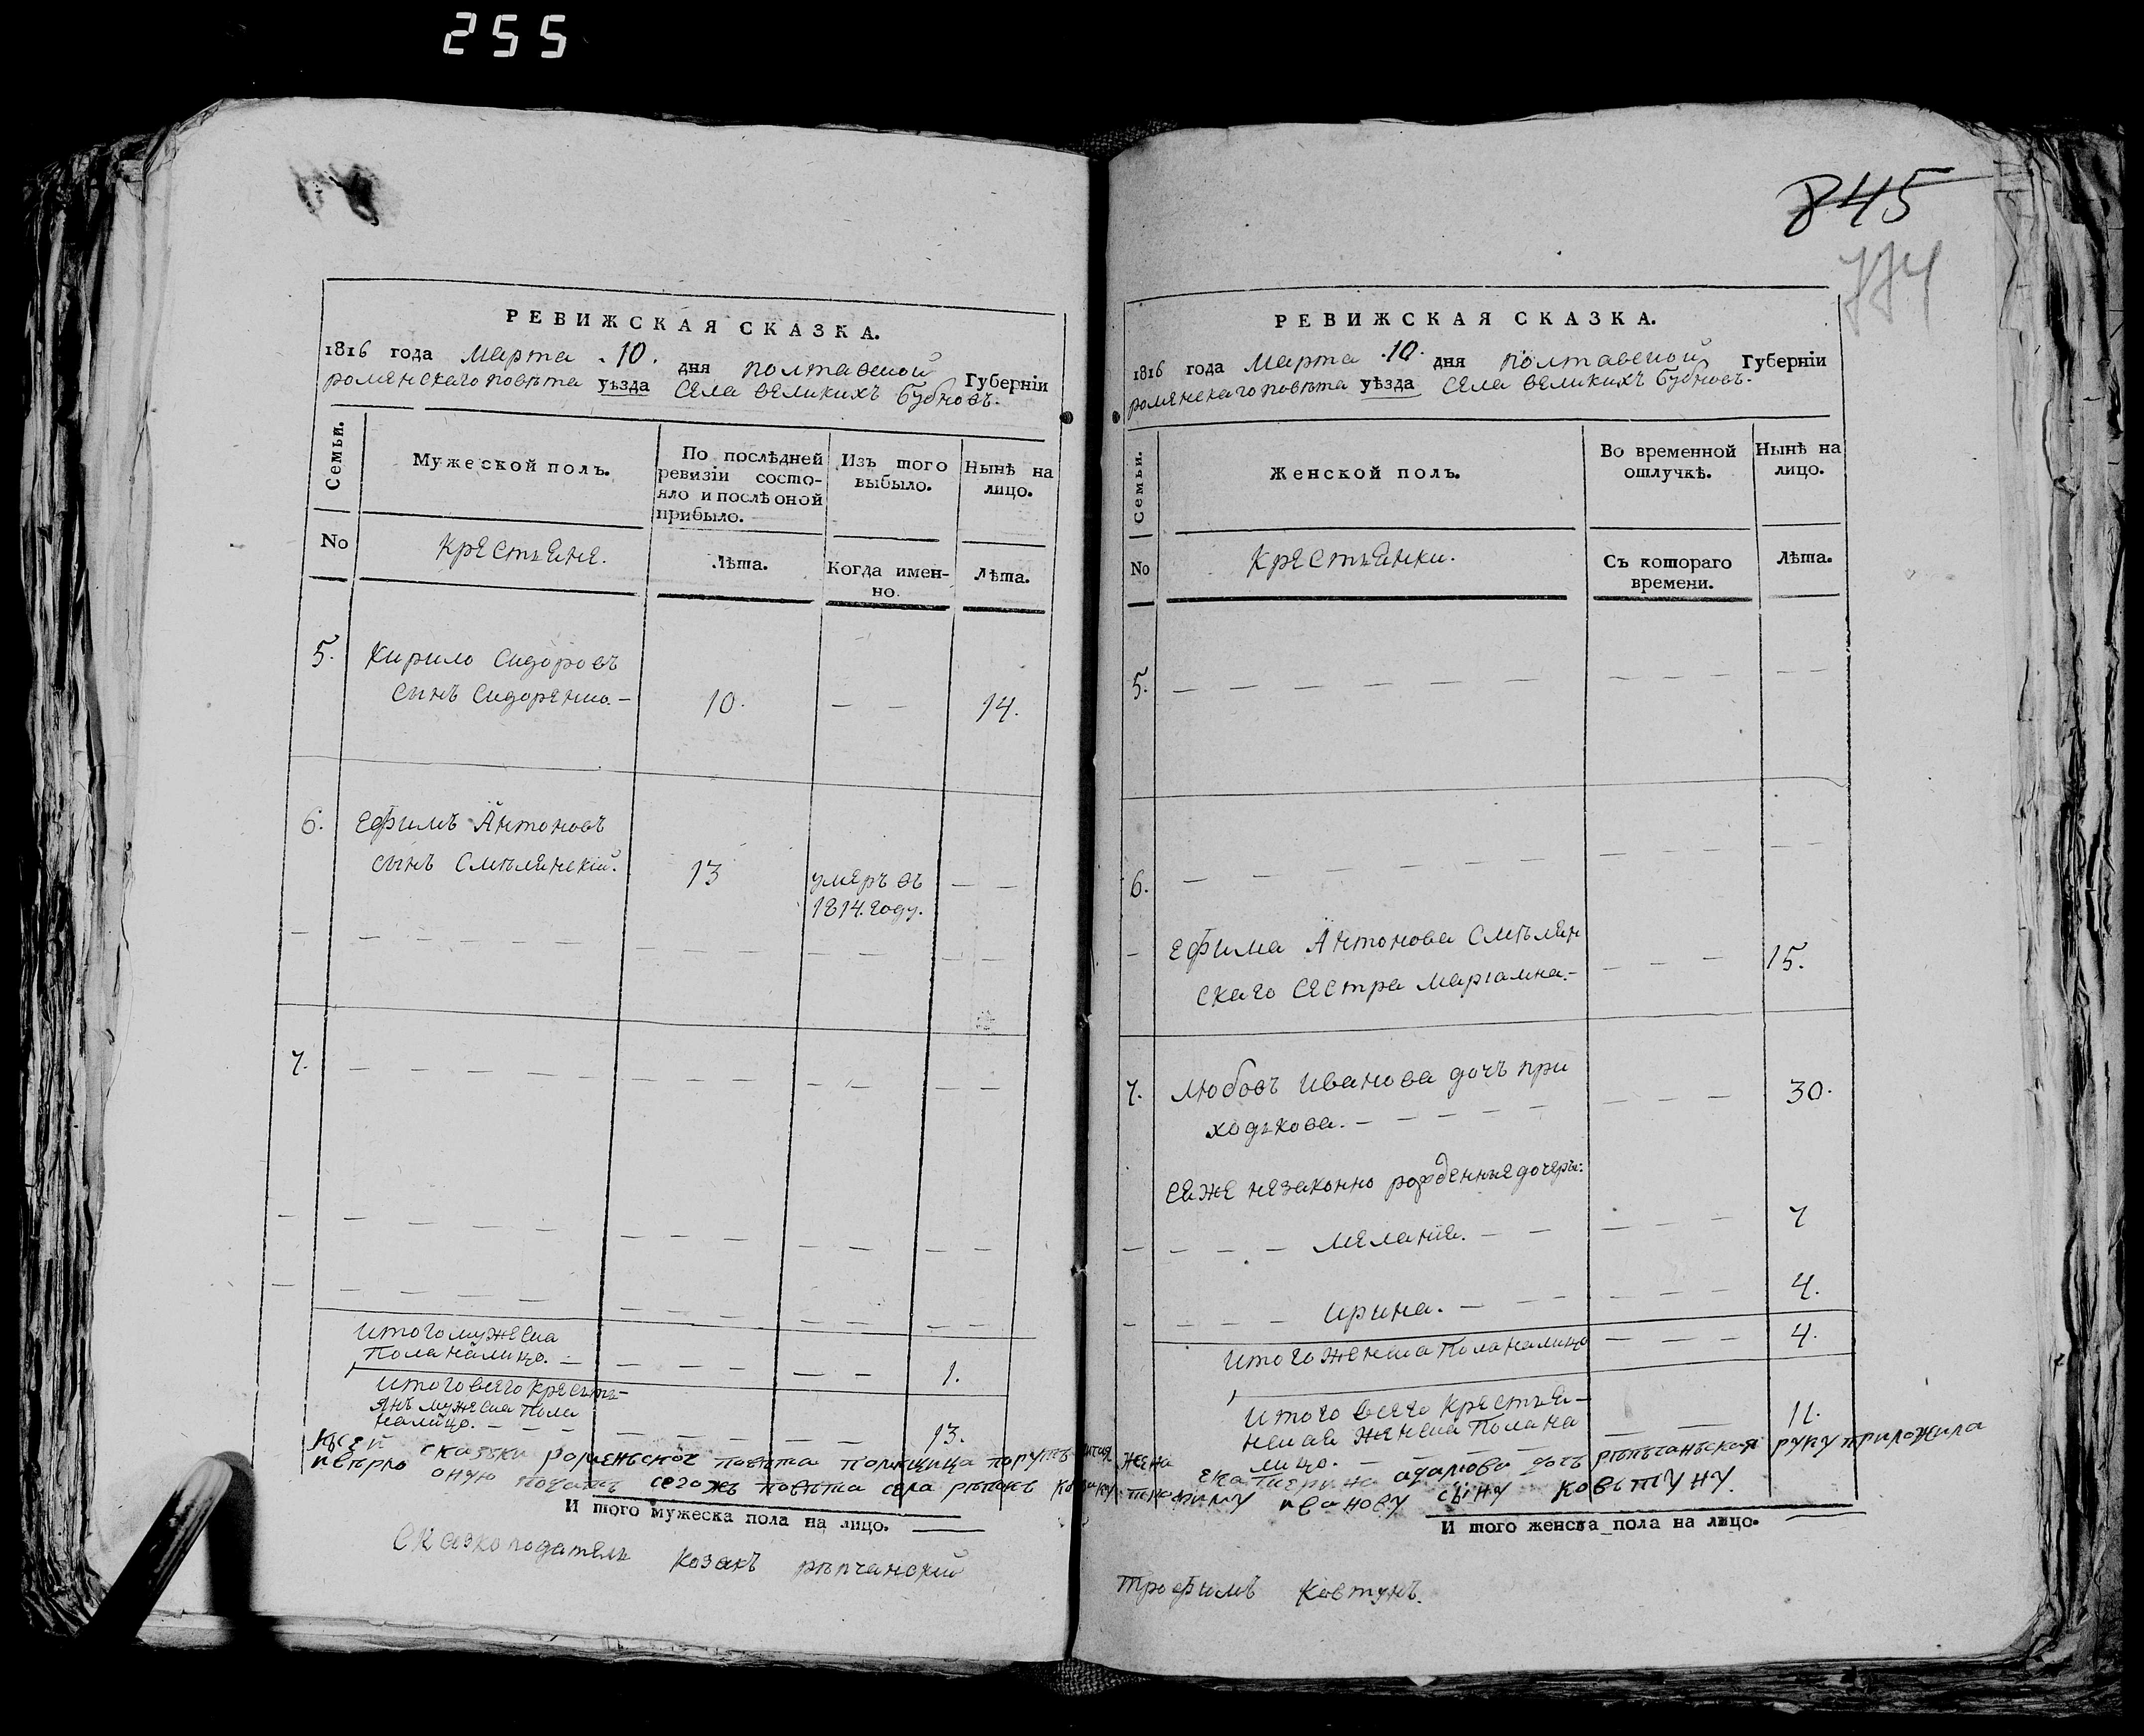 255
845
774
РЕВИЖСКАЯ СКАЗКА.
1816 года Марта .10. дня полтавской Губернїи
роменскаго повѣта уѣзда села великихъ Бубновъ.
Семьи.
Мужеской полъ.
По послѣдней ревизїи состо-
яло и послѣ оной
прибыло.
Изъ того
выбыло.
Нынѣ на
лицо.
No
крестьяне.
Лѣта.
Когда имен-
но.
Лѣта.
5. Кирило Сидоровъ
сынъ Сидоренко. – 10. — — 14.
6. Ефимъ Антоновъ
сынъ Смѣлянскїй. 13 умеръ въ — —
1814. году.
7.
Итого мужеска
пола налицо. — 1.
Итого всего крестьянъ мужеска пола
налицо. — 13.
сказки роменского повѣта помѣщица
оную подать сегожъ повѣта села рѣпокъ козаку
И того мужеска пола на лицо.
Сказкоподатель козакъ рѣпчанский
РЕВИЖСКАЯ СКАЗКА.
1816 года Марта .10. дня полтавской Губернїи
роменскаго повѣта уѣзда села великихъ Бубновъ.
Семьи.
Женской полъ.
Во временной
отлучкѣ.
Нынѣ на
лицо.
No
Крестьянки.
Съ котораго
времени.
Лѣта.
5.
6.
Ефима Антонова Смѣлян
скаго сестра Мариамна. – 15.
7. Любовъ Иванова дочъ при
ходькова. — 30.
еяже незаконно рожденные дочеры:
Меланїя. — 7
Ирина. — 4.
Итого женска пола налицо — 4.
Итого всего крестья-
нокъ женска пола на
лицо. — 11.
жена екатерина адамова дочь рѣпчанская руку приложила
трохиму иванову сыну ковътуну.
И того женска пола на лицо.
Трофимъ Ковтунъ.